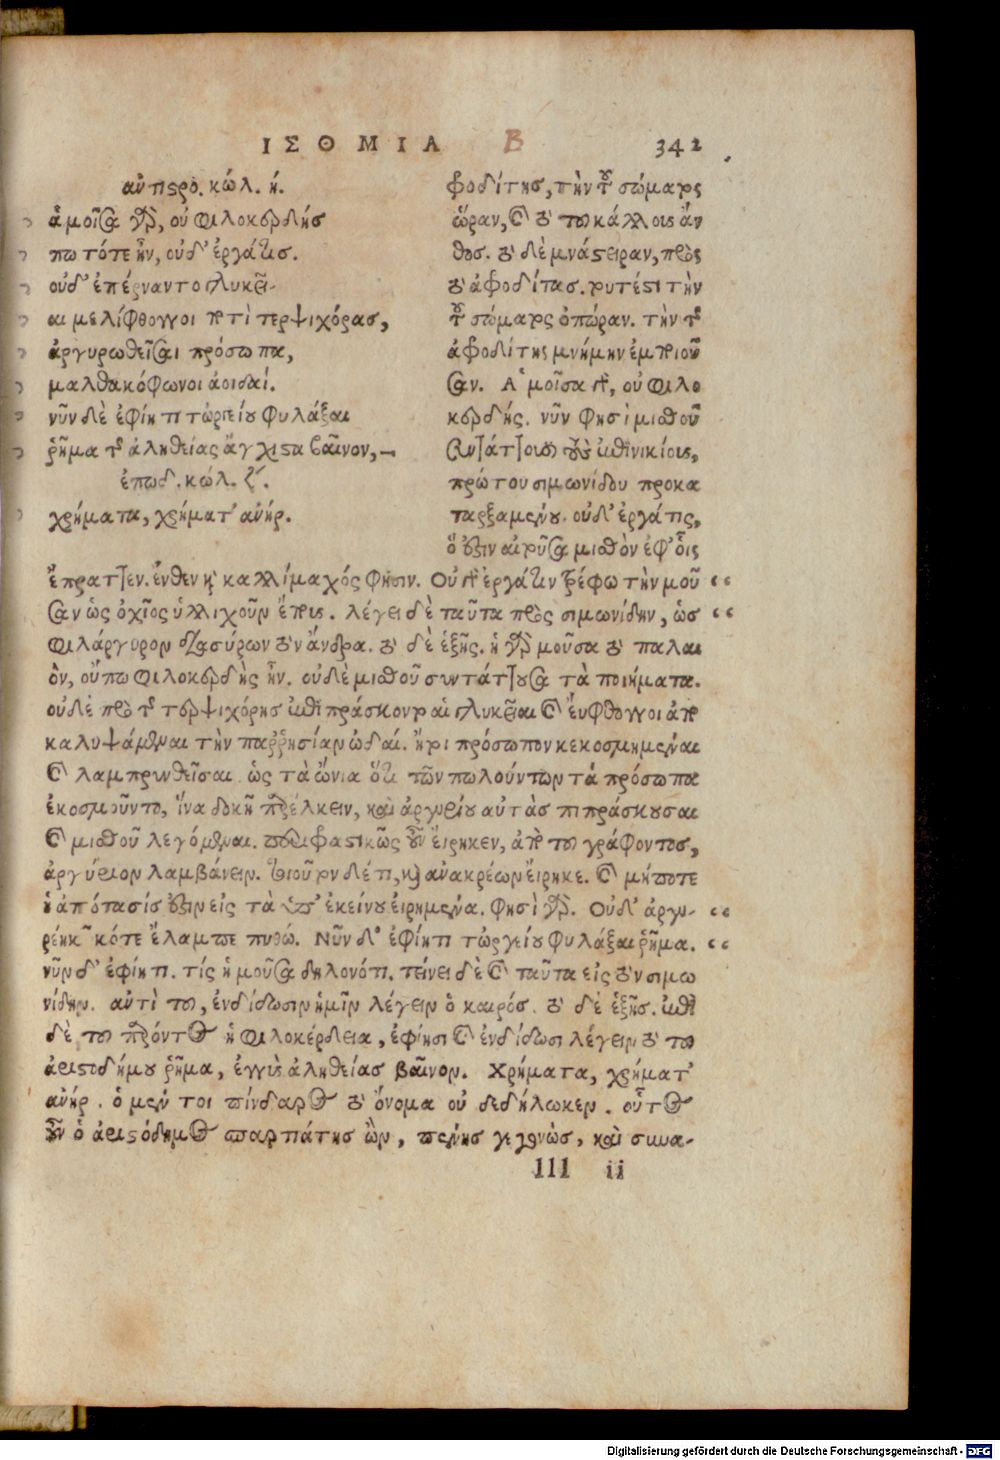 ΙΣΘΜΙΑ Β 342
ἀντιστρο. κώλ. ή.
ἁ μοῖσα γὰρ, οὐ φιλοκερδής
πω τότε ἦν, οὐδ' ἐργάτις.
οὐδ' ἐπέρναντο γλυκεῖ-
αι μελίφθογγοι ποτὶ τερψιχόρας,
ἀργυρωθεῖσαι πρόσωπα,
μαλθακόφωνοι ἀοιδαί.
νῦν δὲ ἐφίητι τὠργείου φυλάξαι
ῥῆμα τῆς ἀληθείας ἄγχιστα βαῖνον,
ἐπωδ. κώλ. ζ'.
χρήματα, χρήματ' ἀνήρ.
φροδίτης, τὴν τοῦ σώματος
ὥραν, καὶ τὸ τοῦ κάλλους ἄν
θος. τὸ δὲ μνάστειραν, πρὸς
τὸ ἀφροδίτας. τουτέστι τὴν
τοῦ σώματος ὀπώραν. τὴν τῆς
ἀφροδίτης μνήμην ἐμποιοῦ
σαν. Ἁ μοῖσα γὰρ, οὐ φιλο
κερδής. νῦν φησὶ μισθοῦ
συντάττουσι τοὺς ἐπινικίους,
πρώτου σιμωνίδου προκα
ταρξαμένου. οὐδ' ἐργάτις,
ὅ ἐστιν αἰτοῦσα μισθὸν ἐφ' οἷς
ἔπραττεν. ἔνθεν καὶ καλλίμαχός φησιν. Οὐ γὰρ ἐργάτιν τρέφω τὴν μοῦ
σαν ὡς ὁ χῖος ὑλλιχοῦν ἔπους. λέγει δὲ ταῦτα πρὸς σιμωνίδην, ὡς
φιλάργυρον διασύρων τὸν ἄνδρα. τὸ δὲ ἑξῆς. ἡ γὰρ μοῦσα τὸ παλαι
ὸν, οὔπω φιλοκερδὴς ἦν. οὐδὲ μισθοῦ συντάττουσα τὰ ποιήματα.
οὐδὲ πρὸ τῆς τερψιχόρης ἐπιπράσκοντο αἱ γλυκεῖαι καὶ εὔφθογγοι ἀπο
καλυψάμεναι τὴν παῤῥησίαν ᾠδαί. ἤτοι πρόσωπον κεκοσμημέναι
καὶ λαμπρυνθεῖσαι ὡς τὰ ὤνια ὅτι τῶν πωλούντων τὰ πρόσωπα
ἐκοσμοῦντο, ἵνα δοκῇ προσέλκειν, καὶ ἀργυρίου αὐτὰς πιπράσκουσαι
καὶ μισθοῦ λεγόμεναι. παραφραστικῶς οὖν εἴρηκεν, ἀπὸ τοῦ γράφοντος,
ἀργύριον λαμβάνειν. τοιοῦτον δέ τι, καὶ ἀνακρέων εἴρηκε. καὶ μήποτε
ἡ ἀπότασίς ἐστιν εἰς τὰ ὑπ' ἐκείνου εἰρημένα. φησὶ γὰρ. Οὐδ' ἀργυ-
ρέηκ κότε ἔλαμπε πυθώ. Νῦν δ' ἐφίητι τὠργείου φυλάξαι ῥῆμα.
νῦν δ' ἐφίητι. τίς ἡ μοῦσα δηλονότι. τείνει δὲ καὶ ταῦτα εἰς τὸν σιμω
νίδην. ἀντὶ τοῦ, ἐνδίδωσιν ἡμῖν λέγειν ὁ καιρός. τὸ δὲ ἑξῆς. ἐπεὶ
δὲ τοῦ προσόντος ἡ φιλοκέρδεια, ἐφίησι καὶ ἐνδίδωσι λέγειν τὸ τοῦ
ἀριστοδήμου ῥῆμα, ἐγγὺς ἀληθείας βαῖνον. Χρήματα, χρήματ'
ἀνήρ. ὁ μέν τοι πίνδαρος τὸ ὄνομα οὐ δεδήλωκεν. οὗτος
οὖν ὁ ἀριστόδημος σπαρτιάτης ὢν, πένης γεγονὼς, καὶ συνα-
lll ii
Digitalisierung gefördert durch die Deutsche Forschungsgemeinschaft - DFG